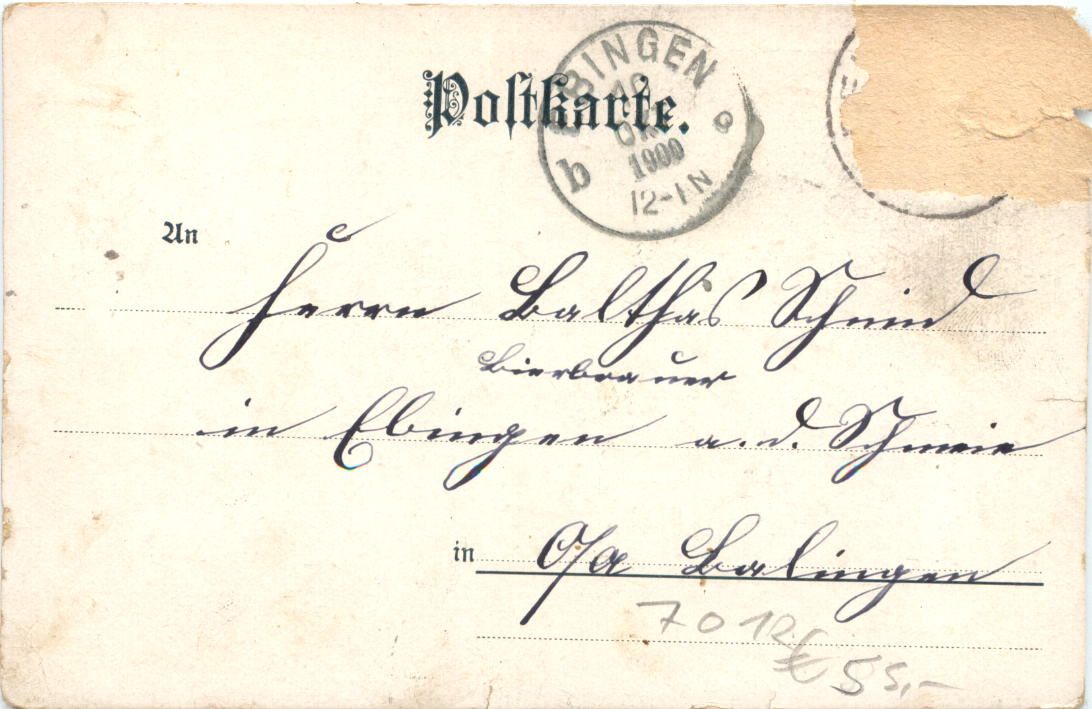 Postkarte.
EBINGEN
10
OK
1900
12-1 N
b
An
Herrn Balthas Schmid
Bierbrauer
in Ebingen a. d. Schmeie
in O/A Balingen
7012
€ 55,-